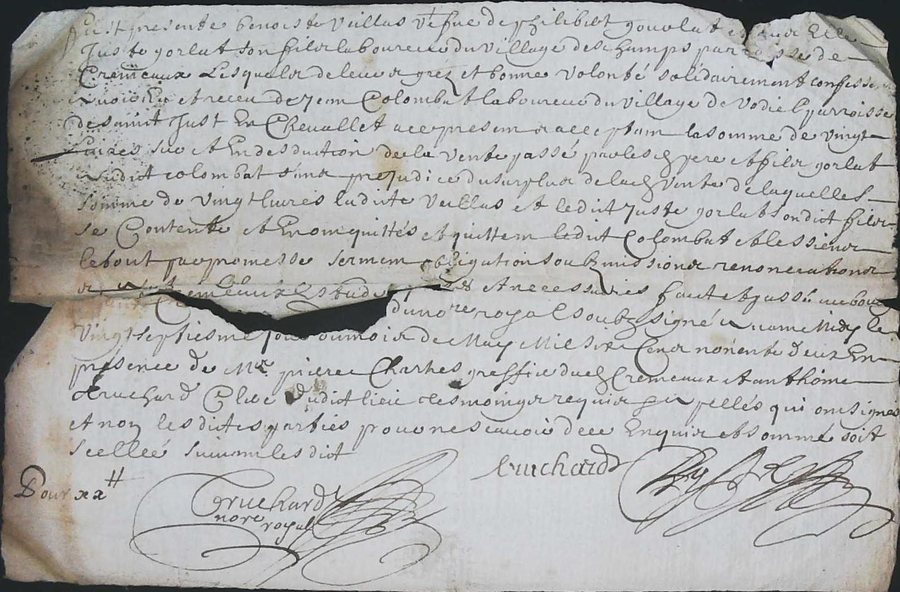 A esté presente benoiste Veillas Vefve de philibert gourlat et avec elle
Juste gorlat son fils laboureur du village deschamps parroisse de
Cremeaux Lesquels de leurs gréz et bonne volonté solidairement confesse
avoir Eu et receu de Jem Colombat laboureur du village de Vodie parroisse
de saint Just En Chevallet ace present et acceptam la somme de vingt
livres sur et En desduction de la vente passé par les ch pere et fils gorlat
audit colombat sans prejudice du surplus de lach vente de laquelles
somme de vingt livres ladite Veillas et ledit Juste gorlat son dict filz
se Contente et En om quittés et quittem ledit Colombat et les siens
le tout par promesse sermem obligation soubzmissions renonciaōns
et Cremeaux Estude et necessaires fait et passé au bourg
du nore royal soubzsigné avant Midy le
Vingt septiesme jour du mois de May Mil six Cens nonente deux En
presence de Mre pierre Charles greffier duch Cremeaux et anthoine
Cruchard Clerc dudit lieu tesmoings requis appellés qui om signés
Et non lesdites parties pour ne scavoir de ce Enquis et sommé soit
scellé suivam ledict
Cruchard
Pour xx tt
Cruchard
nore royal